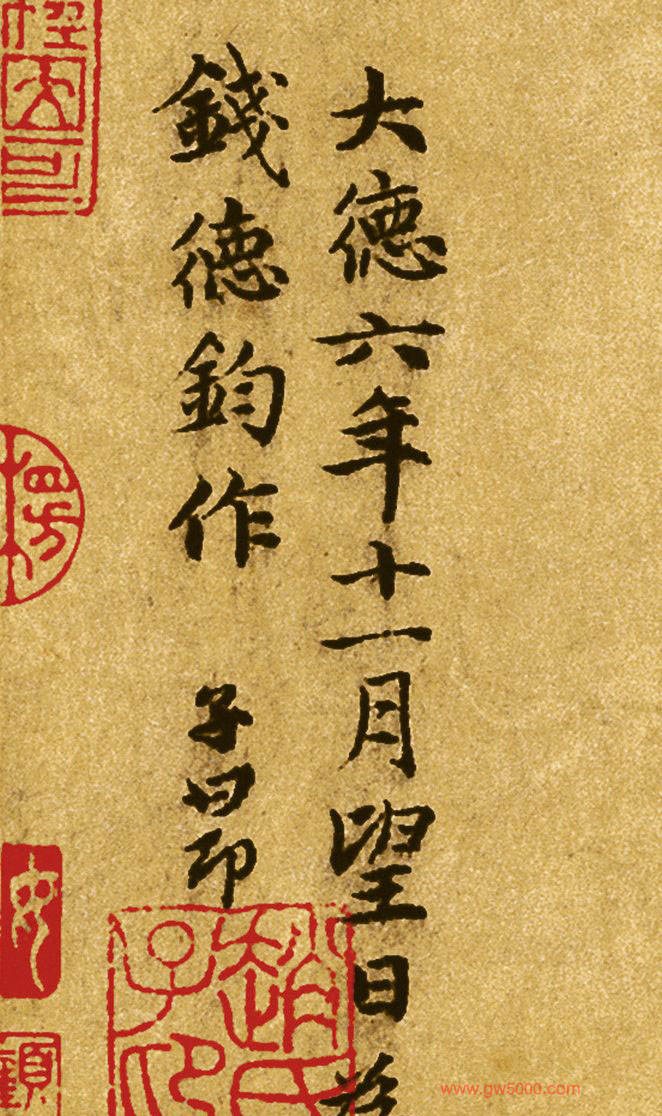 大德六年十一月望日為
錢德鈞作 子昂
趙氏
子印
www.gw5000.com